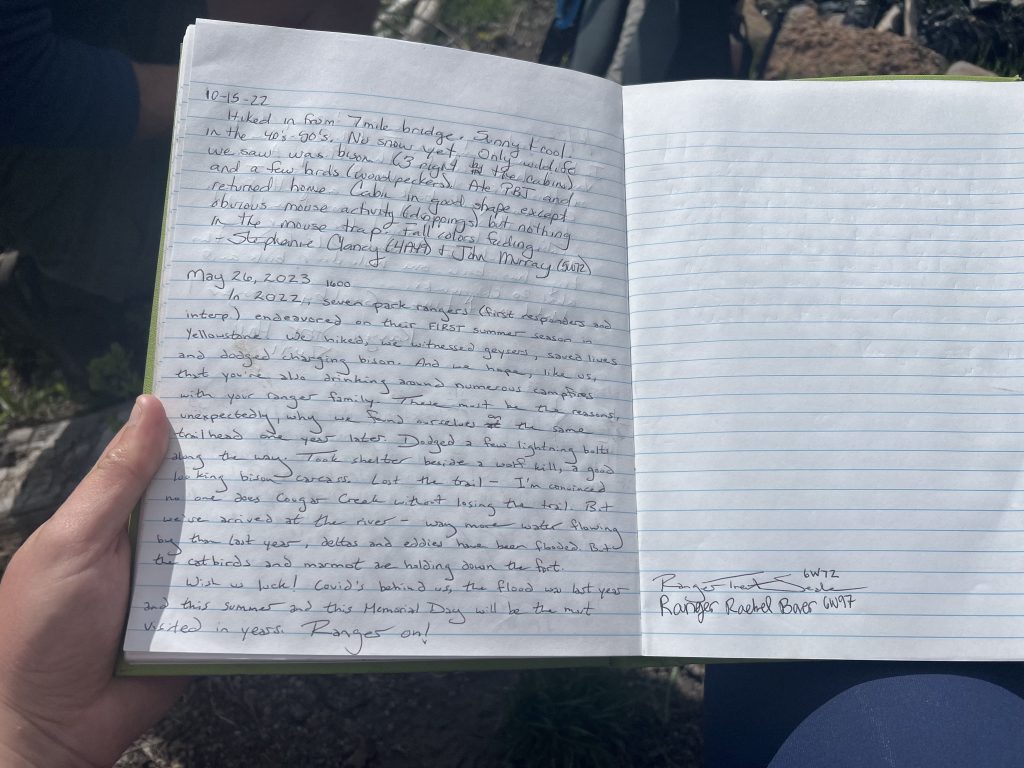 10-15-22
Hiked in from 7mile bridge. Sunny + cool.
in the 40's-50's. No snow yet. Only wildlife
we saw was bison (3 right by the cabin)
and a few birds (woodpeckers). Ate PBJ and
returned home. Cabin in good shape except
obvious mouse activity (droppings) but nothing
in the mouse trap. Fall colors fading.
- Stephanie Clancy (4A49) + John Murray (5U72)
May 26, 2023 1600
In 2022, seven park rangers (first responders and
interp.) endeavored on their FIRST summer season in
Yellowstone. We hiked, we witnessed geysers, saved lives
and dodged charging bison. And we hope, like us,
that you're also drinking around numerous campfires
with your ranger family. These must be the reasons,
unexpectedly, why we found ourselves at the same
trailhead one year later. Dodged a few lightning bolts
along the way. Took shelter beside a wolf kill, a good
looking bison carcass. Lost the trail - I'm convinced
no one does Cougar Creek without losing the trail. But
we've arrived at the river - way more water flowing
by than last year, deltas and eddies have been flooded. But
the catbirds and marmot are holding down the fort.
Wish us luck! Covid's behind us, the flood was last year
and this summer and this Memorial Day will be the most
visited in years. Ranger on!
Ranger 6W72
Ranger Rachel Baer 6W97